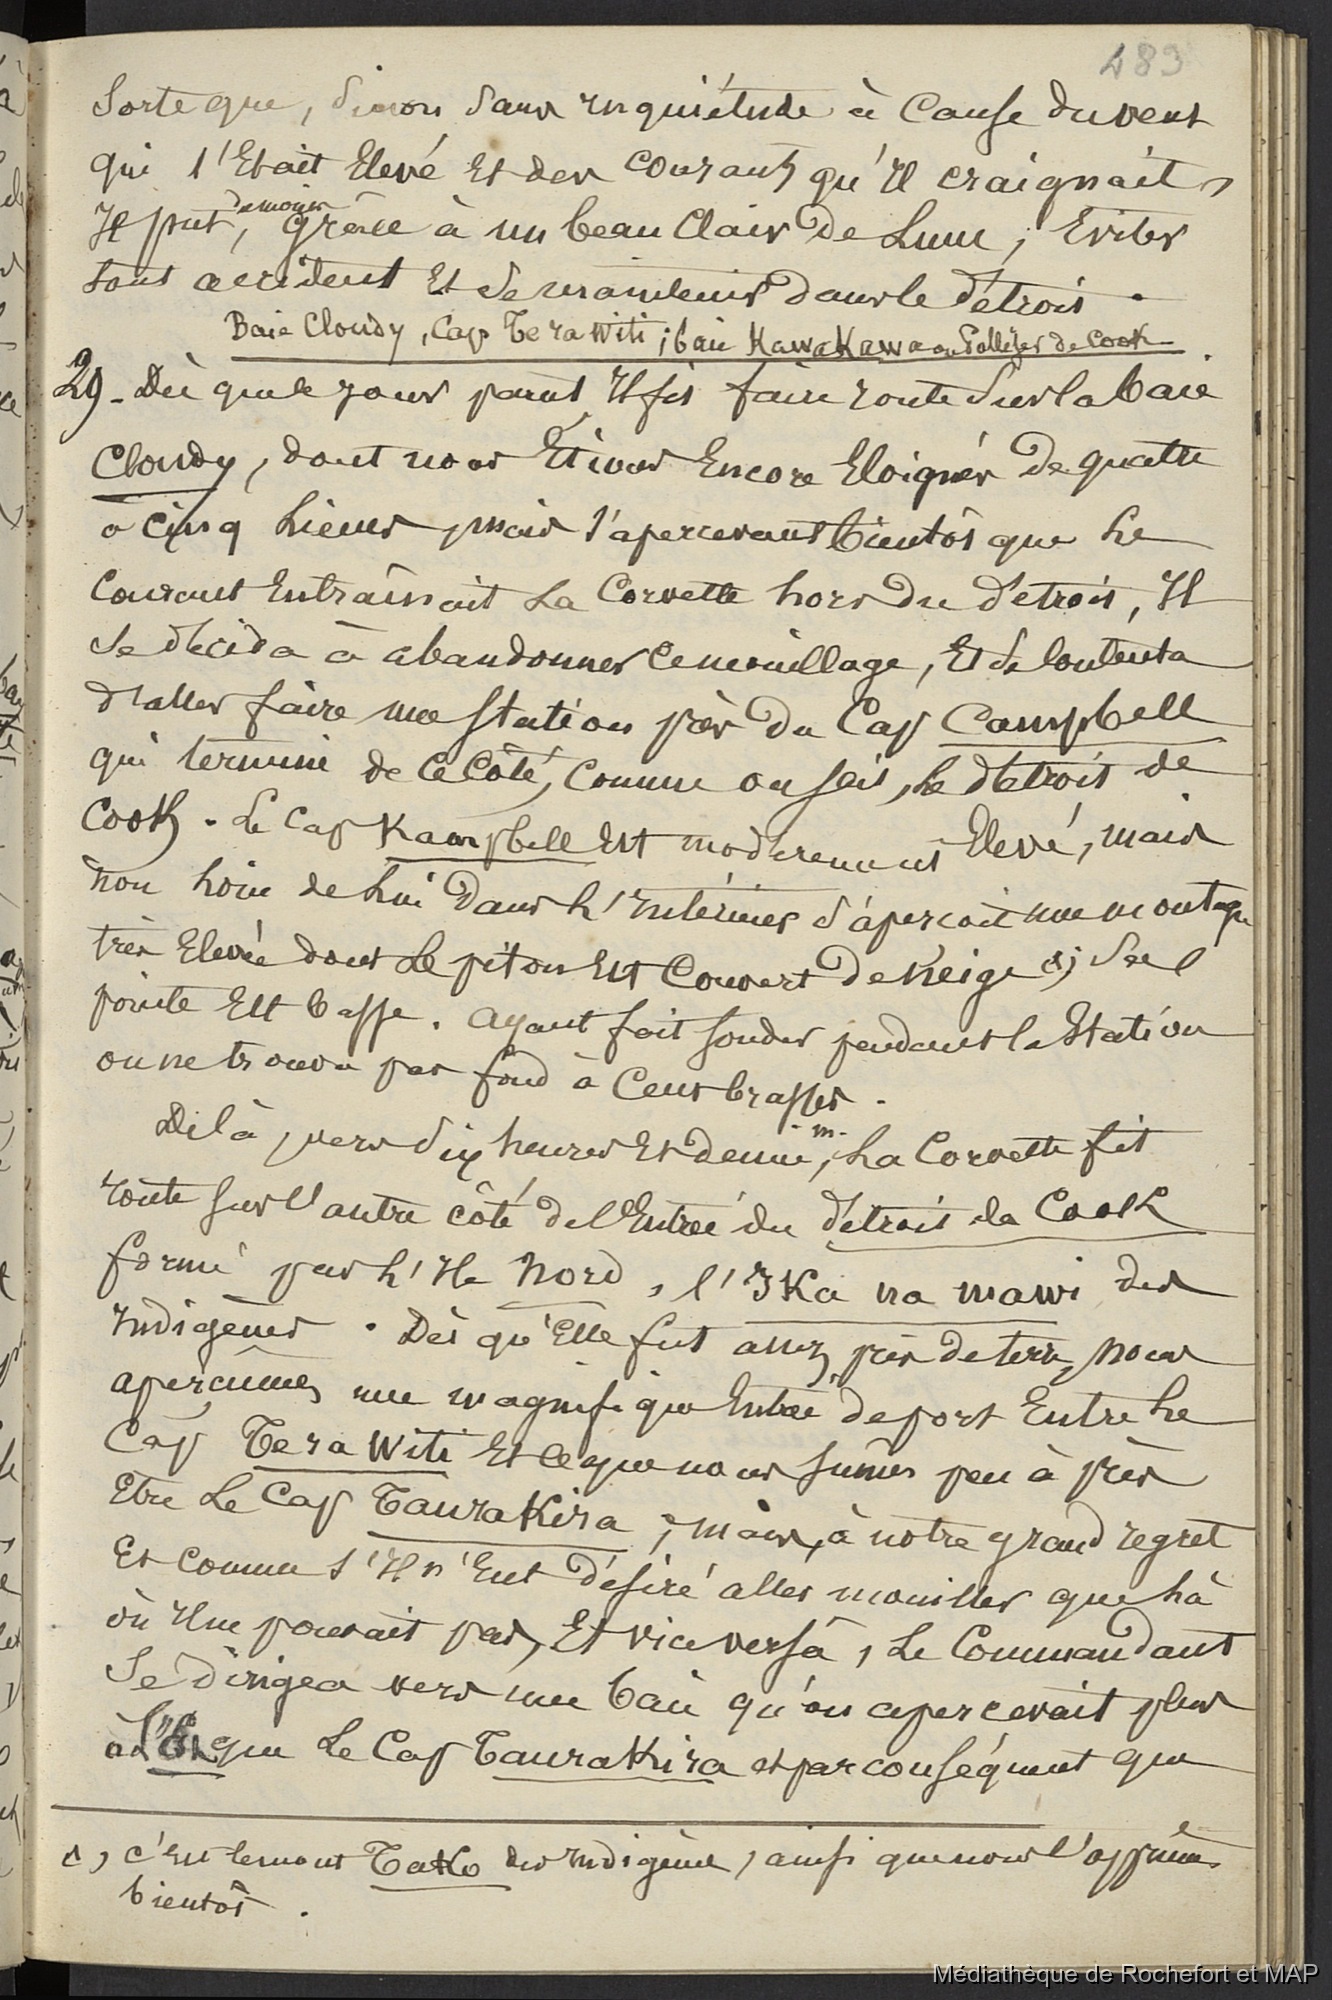 483
Sorte que, Sinon Sans inquiétude à Cause du vent
qui s'Etait Elevé Et des Courants qu'Il craignait,
Il put, du moins, grâce à un beau Clair de Lune, Eviter
tout accident Et Se maintenir dans le détroit.
Baie Cloudy, Cap Tera Witi ; baie KawaKawa ou Palliser de Cook
29 - Dès que le jour parut, Il fit faire route Sur la baie
Cloudy, dont nous Etions Encore Eloignés de quatre
à Cinq Lieues, mais s'apercevant bientôt que Le
Courant Entraînait La Corvette hors du détroit, Il
Se décida à abandonner Ce mouillage, Et Se Contenta
d'aller faire une Station près du Cap Campbell
qui termine de Ce Côté, Comme on sait, Le détroit de
Cook. Le Cap Kampbell Est modérement Elevé, mais
non Loin de Lui dans L'Intérieur s'aperçoit une montagne
très Elevée dont Le piton Est Couvert de Neige (1) ; Sa
pointe Est basse. Ayant fait sonder pendant la Station
on ne trouva pas fond à Cent brasses.
De là, vers dix heures Et demie m., La Corvette fit
route sur l'autre côté de l'Entrée du détroit de Cook
formé par L'Ile Nord, l'IKa na mawi des
Indigènes. Dès qu'Elle fut assez près de terre, Nous
aperçûmes une magnifique Entrée de port Entre Le
Cap Tera Witi Et Ce que nous sûmes peu à près
Etre Le Cap TauraKira ; mais, à notre grand regret
Et Comme s'Il n'Eut désiré aller mouiller que Là
où Il ne pouvait pas, Et vice versâ, Le Commandant
Se dirigea vers une baie qu'on apercevait plus
à l'Est que Le Cap TauraKira et par conséquent que
(1) C'est le mont TaKo des Indigènes, ainsi que nous l'apprîmes
bientôt.
Médiathèque de Rochefort et MAP